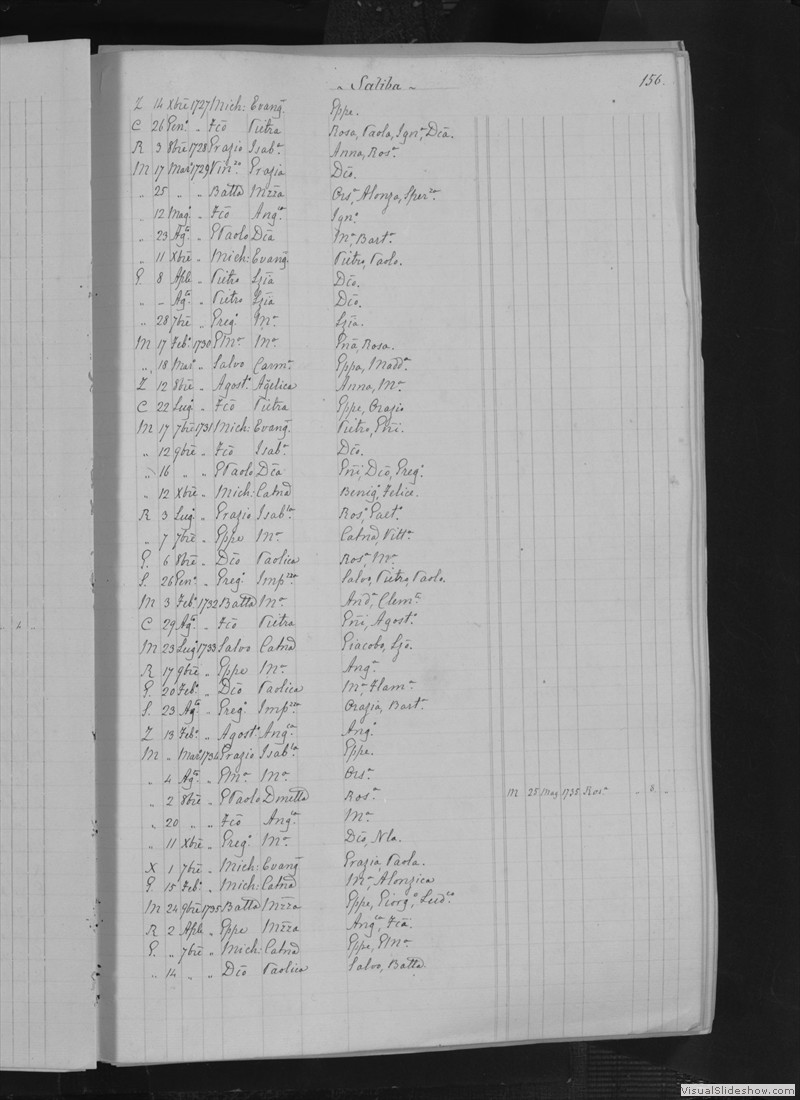 ~ Saliba ~ 156.
Z 14 Xbre 1727 Mich: Evang. Eppe.
C 26 Gen° „ Fcō Pietra Rosa, Paola, Ign°, Dca.
R 3 8bre 1728 Grazio Isabª Anna, Rosª
M 17 Mar° 1729 Vinzo Grazia Dco.
„ 25 „ „ Batta Mzza Orsª, Alonza, Sperza
„ 12 Mag° „ Fcō Angca Ign°
„ 23 Agto „ GPaolo Dca Mª, Bartª
„ 11 Xbre „ Mich: Evang. Pietro, Paolo.
G. 8 Aple „ Pietro Lzia Dco.
„ – Agto „ Pietro Lzia Dco.
„ 28 7bre „ Greg° Mª Lzia.
M 17 Feb° 1730 GMª Mª Gna, Rosa.
„ 18 Mar° „ Salvo Carmª Eppa, Maddª
Z 12 8bre „ Agost° Agelica Anna, Mª
C 22 Lug° „ Fcō Pietra Eppe, Orazio
M 17 7bre 1731 Mich: Evang. Pietro, Gni.
„ 12 9bre „ Fcō Isabª Dco.
„ 16 „ „ GPaolo Dca Gni, Dco, Greg°
„ 12 Xbre „ Mich: Catna Benig°, Felice.
R 3 Lug° „ Grazio Isabla Ros°, Gaet°
„ 7 7bre „ Eppe Mª Catna, Vittª
G. 6 8bre „ Dco Paolica Rosª, Mª
S. 26 Gen° „ Greg° Impzia Salvo, Pietro, Paolo.
M 3 Feb° 1732 Batta Mª Andª, Clemte
C 29 Agto „ Fcō Pietra Gni, Agost°
M 23 Lug° 1733 Salvo Catna Giacobo, Lzo.
R 17 9bre „ Eppe Mª Angª
G. 20 Feb° „ Dco Paolica Mª, Flamª
S. 23 Agto „ Greg° Impzia Orazia, Bartª
Z 13 Feb° „ Agost° Angca Ang°
M „ Mar° 1734 Grazio Isabla Eppe.
„ 4 Agto „ GMª Mª Orsª
„ 2 8bre „ GPaolo Dmetta Rosª M 25 Mag 1735 Rosª „ 8 „
„ 20 „ „ Fcō Angca Mª
„ 11 Xbre „ Greg° Mª Dco, Nla.
X 1 7bre „ Mich: Evang. Grazia Paola.
G. 15 Feb° „ Mich: Catna Mª, Alonzica
M 24 9bre 1735 Batta Mzza Eppe, Giorg°,
R 2 Aple „ Eppe Mzza Angca, Fca.
G. „ 7bre „ Mich: Catna Eppe, GMª
„ 14 „ „ Dco Paolica Salvo, Batta
VisualSlideshow.com